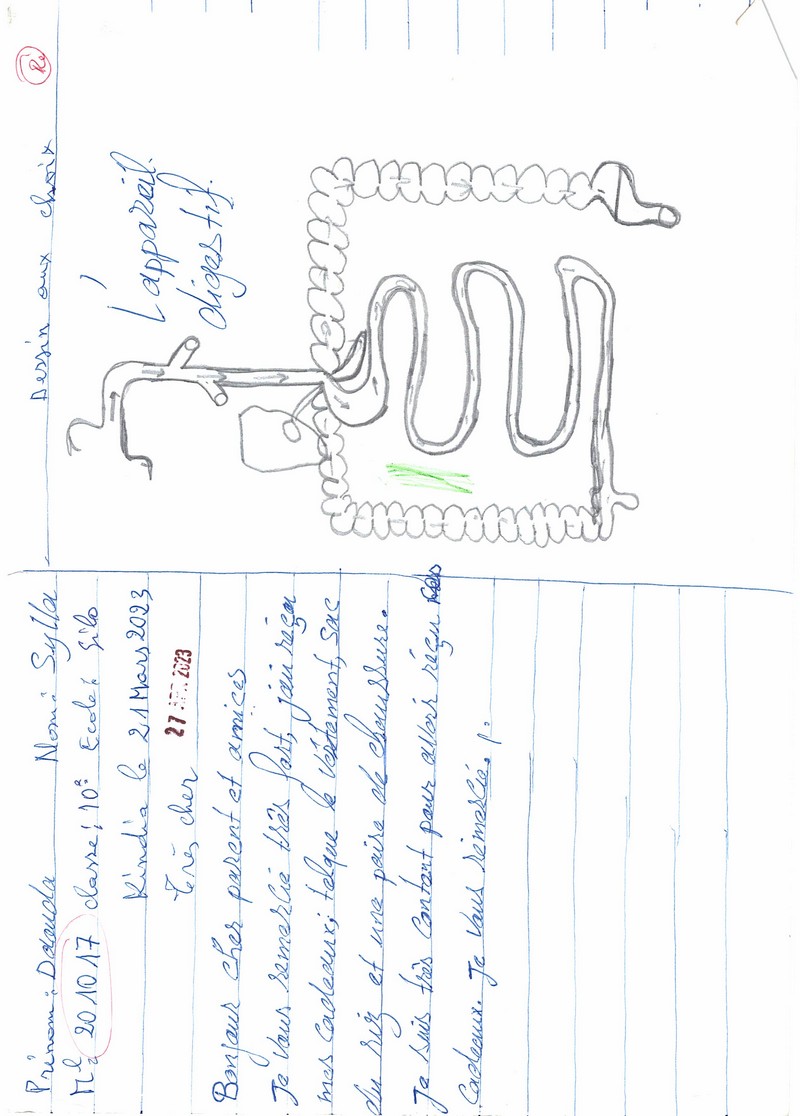 Prénom: Daouda Nom: Sylla
Mle 201017 classe: 10e Ecole: Filo
Kindia le 21 Mars 2023
27 2023
Très cher
Bonjour cher parent et amices
Je vous remercie très fort, j'ai reçu
mes cadeaux; telque le vêtement, sac
du riz et une paire de chaussure.
Je suis très contant pour avoir réçu
Cadeaux. Je vous remercie.
Dessin aux choix
L'appareil
digestif.